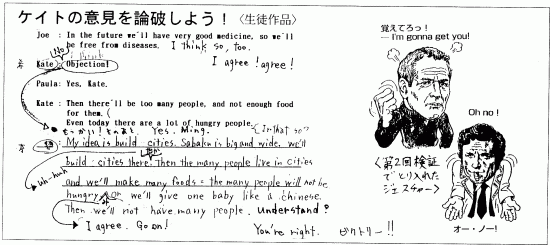 ケイトの意見を論破しよう！〈生徒作品〉
Joe : In the future we'll have very good medicine, so we'll
be free from diseases. I think so, too.
No
I agree! agree!
Kate : Objection!
Paula: Yes, Kate.
Kate : Then there'll be too many people, and not enough food
for them.
Even today there are a lot of hungry people.
Yes, Ming. Is that so?
My idea is build cities. Sabaku is big and wide. we'll
build cities there. Then the many people live in cities
uh-huh
and we'll make many foods. the many people will not be
hungry. or we'll give one baby like a chinese.
Then we'll not have many people. Understand?
I agree. Go on!
You're right. ビクトリー!!
覚えてろっ！
— I'm gonna get you!
Oh no!
〈第2回検証
でとり入れた
ジェスチャー〉
オー・ノー！